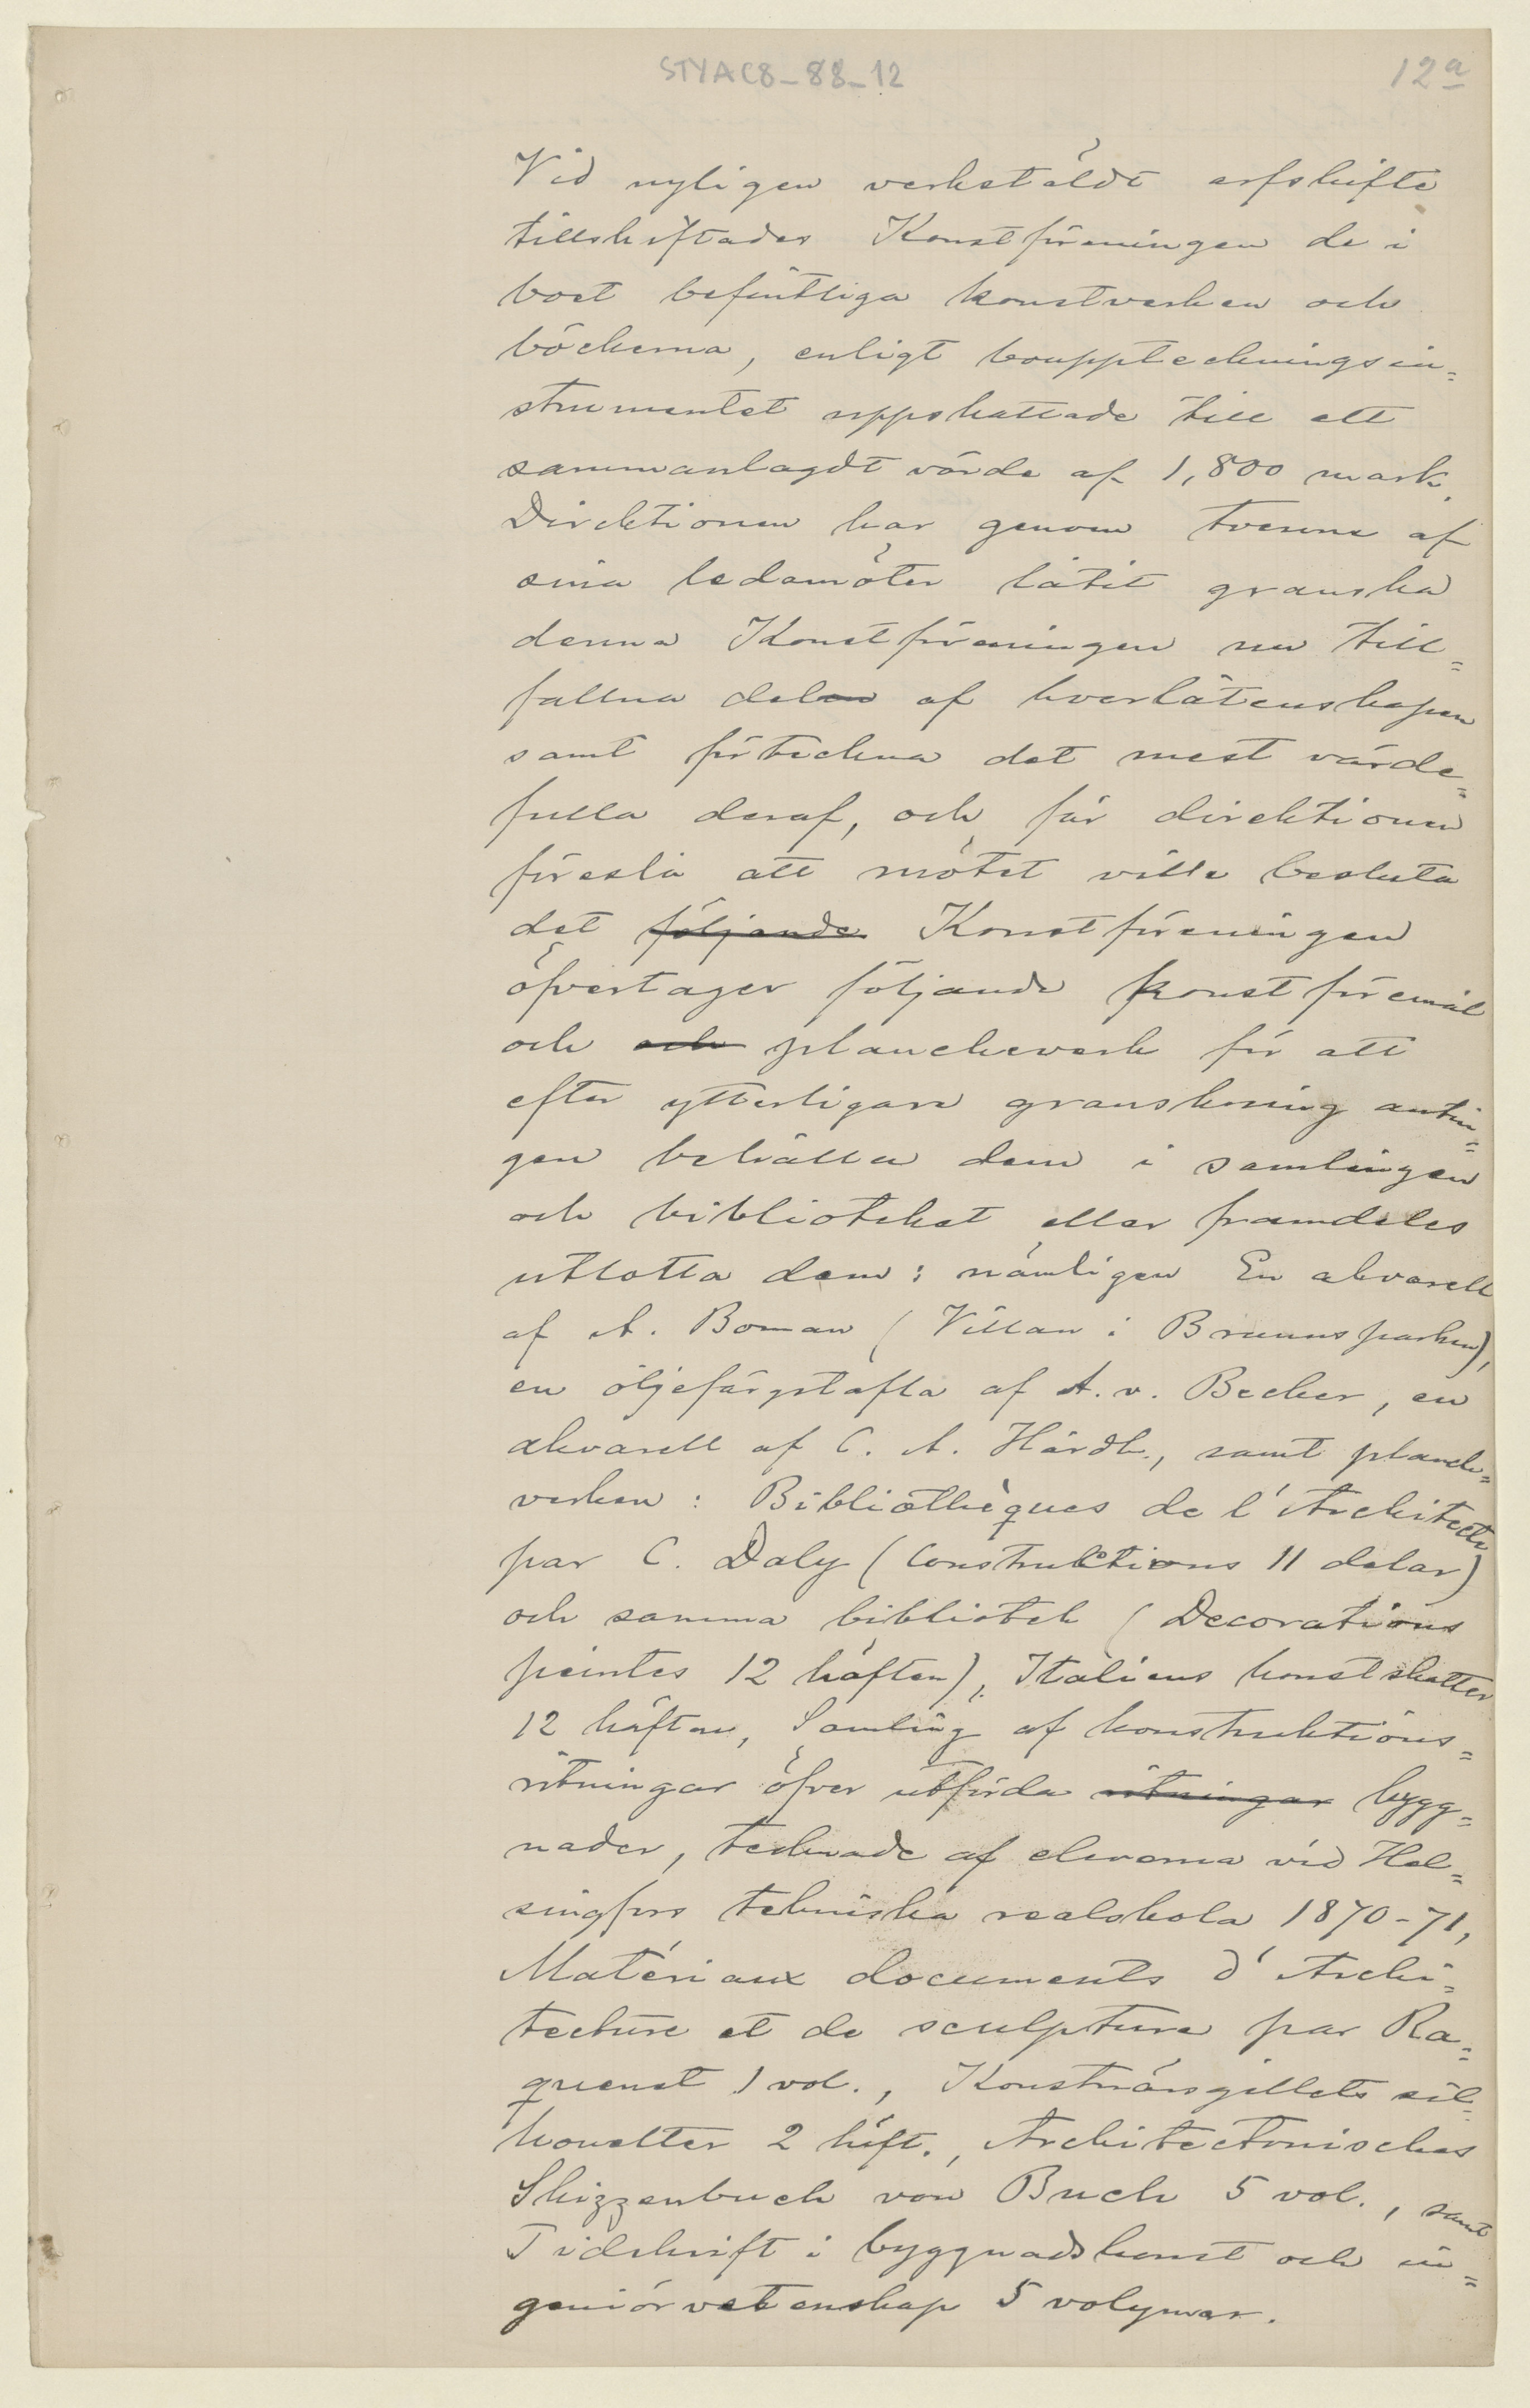 STYAC8_88_12
12a
Vid nyligen verkstäldt arfskifte
tillskiftades Konstföreningen de i
boet befintliga konstverken och
böckerna, enligt bouppteckningsin=
strumentet uppskattade till ett
sammanlagdt värde af 1,800 mark.
Direktionen har genom tvenne af
sina ledamöter låtit granska
denna Konstföreningen nu till=
fallna delen af kvarlåtenskapen
samt förteckna det mest värde=
fulla deraf, och får direktionen
föreslå att mötet ville besluta
det följande Konstföreningen
öfvertager följande konstföremål
och och planchverk för att
efter ytterligare granskning antin=
gen behålla dem i samlingen
och biblioteket eller framdeles
utlotta dem: nämligen En akvarell
af A. Boman (Villan i Brunnsparken),
en oljefärgstafla af A. v. Becker, en
akvarell af C. A. Hårdh., samt planch=
verken: Bibliothèques de l'Architecte
par C. Daly (Constructions 11 delar)
och samma bibliotek (Decorations
peintes 12 häften), Italiens konstskatter
12 häften, Samling af konstruktions=
ritningar öfver utförda ritningar bygg=
nader, tecknade af eleverna vid Hel=
singfors tekniska realskola 1870-71,
Matériaux documents d'Archi=
tecture et de sculpture par Ra=
guenet 1 vol., Konstnärsgillets sil=
houetter 2 häft., Architectonisches
Skizzenbuch von Buch 5 vol., samt
Tidskrift i byggnadskonst och in=
geniörvetenskap 5 volymer.